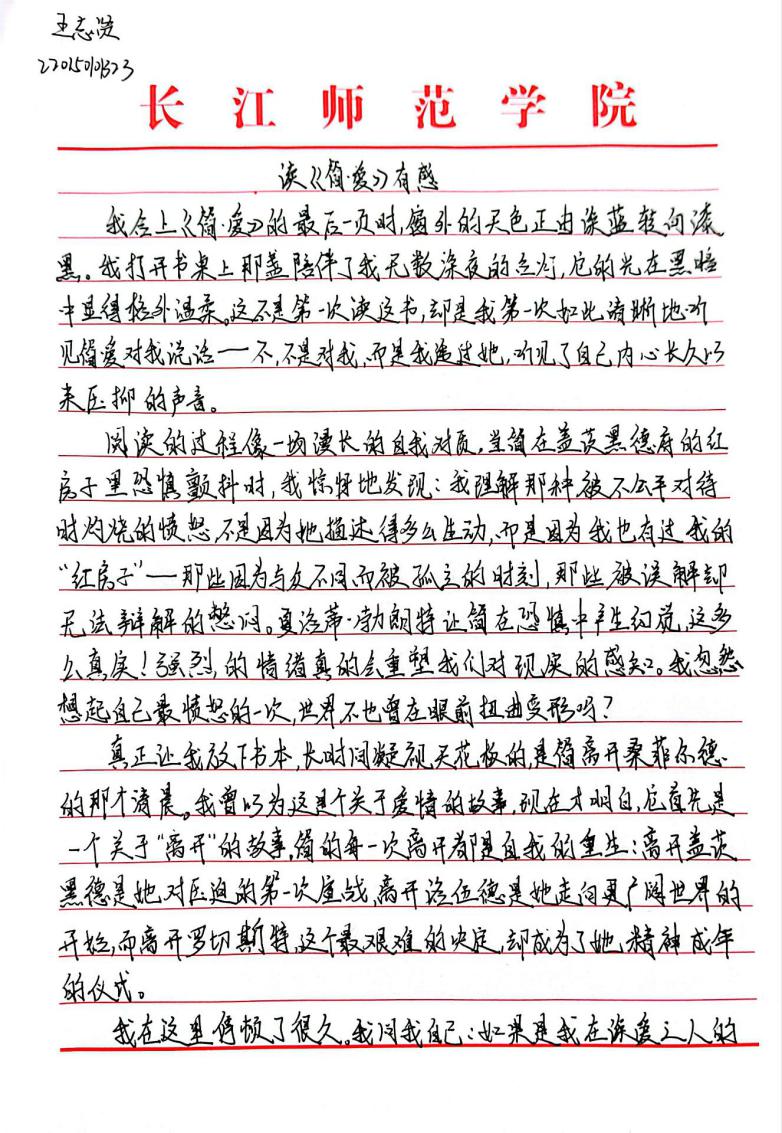 王志
220150101323
长江师范学院
读《简·爱》有感
我合上《简·爱》的最后一页时,窗外的天色正由深蓝转向漆
黑。我打开书桌上那盖陪伴了我无数深夜的台灯,它的光在黑暗
中显得格外温柔。这不是第一次读这书,却是我第一次如此清晰地听
见简爱对我说话——不,不是对我,而是我透过她,听见了自己内心长久以
来压抑的声音。
阅读的过程像一场漫长的自我对质,当简在盖茨黑德府的红
房子里恐惧颤抖时,我惊讶地发现:我理解那种被不公平对待
时灼烧的愤怒,不是因为她描述得多么生动,而是因为我也有过我的
“红房子”——那些因为与众不同而被孤立的时刻,那些被误解却
无法辩解的憋闷。夏洛蒂·勃朗特让简在恐惧中产生幻觉,这多
么真实!强烈的情绪真的会重塑我们对现实的感知。我忽然
想起自己最愤怒的一次,世界不也曾在眼前扭曲变形吗?
真正让我放下书本,长时间凝视天花板的,是简离开桑菲尔德
的那个清晨。我曾以为这是个关于爱情的故事,现在才明白,它首先是
一个关于“离开”的故事,简的每一次离开都是自我的重生:离开盖茨
黑德是她对压迫的第一次宣战,离开洛伍德是她走向更广阔世界的
开始,而离开罗切斯特,这个最艰难的决定,却成为了她精神成年
的仪式。
我在这里停顿了很久。我问我自己:如果是我在深爱之人的